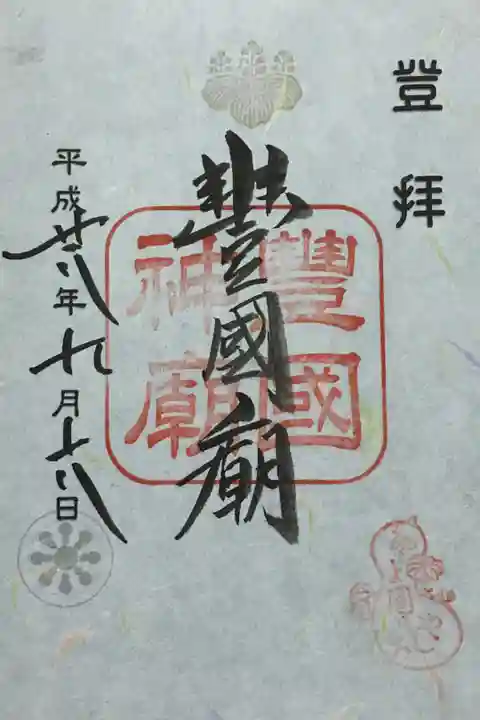 登拜
豐國廟
豐國
神廟
平成廿八年九月十八日